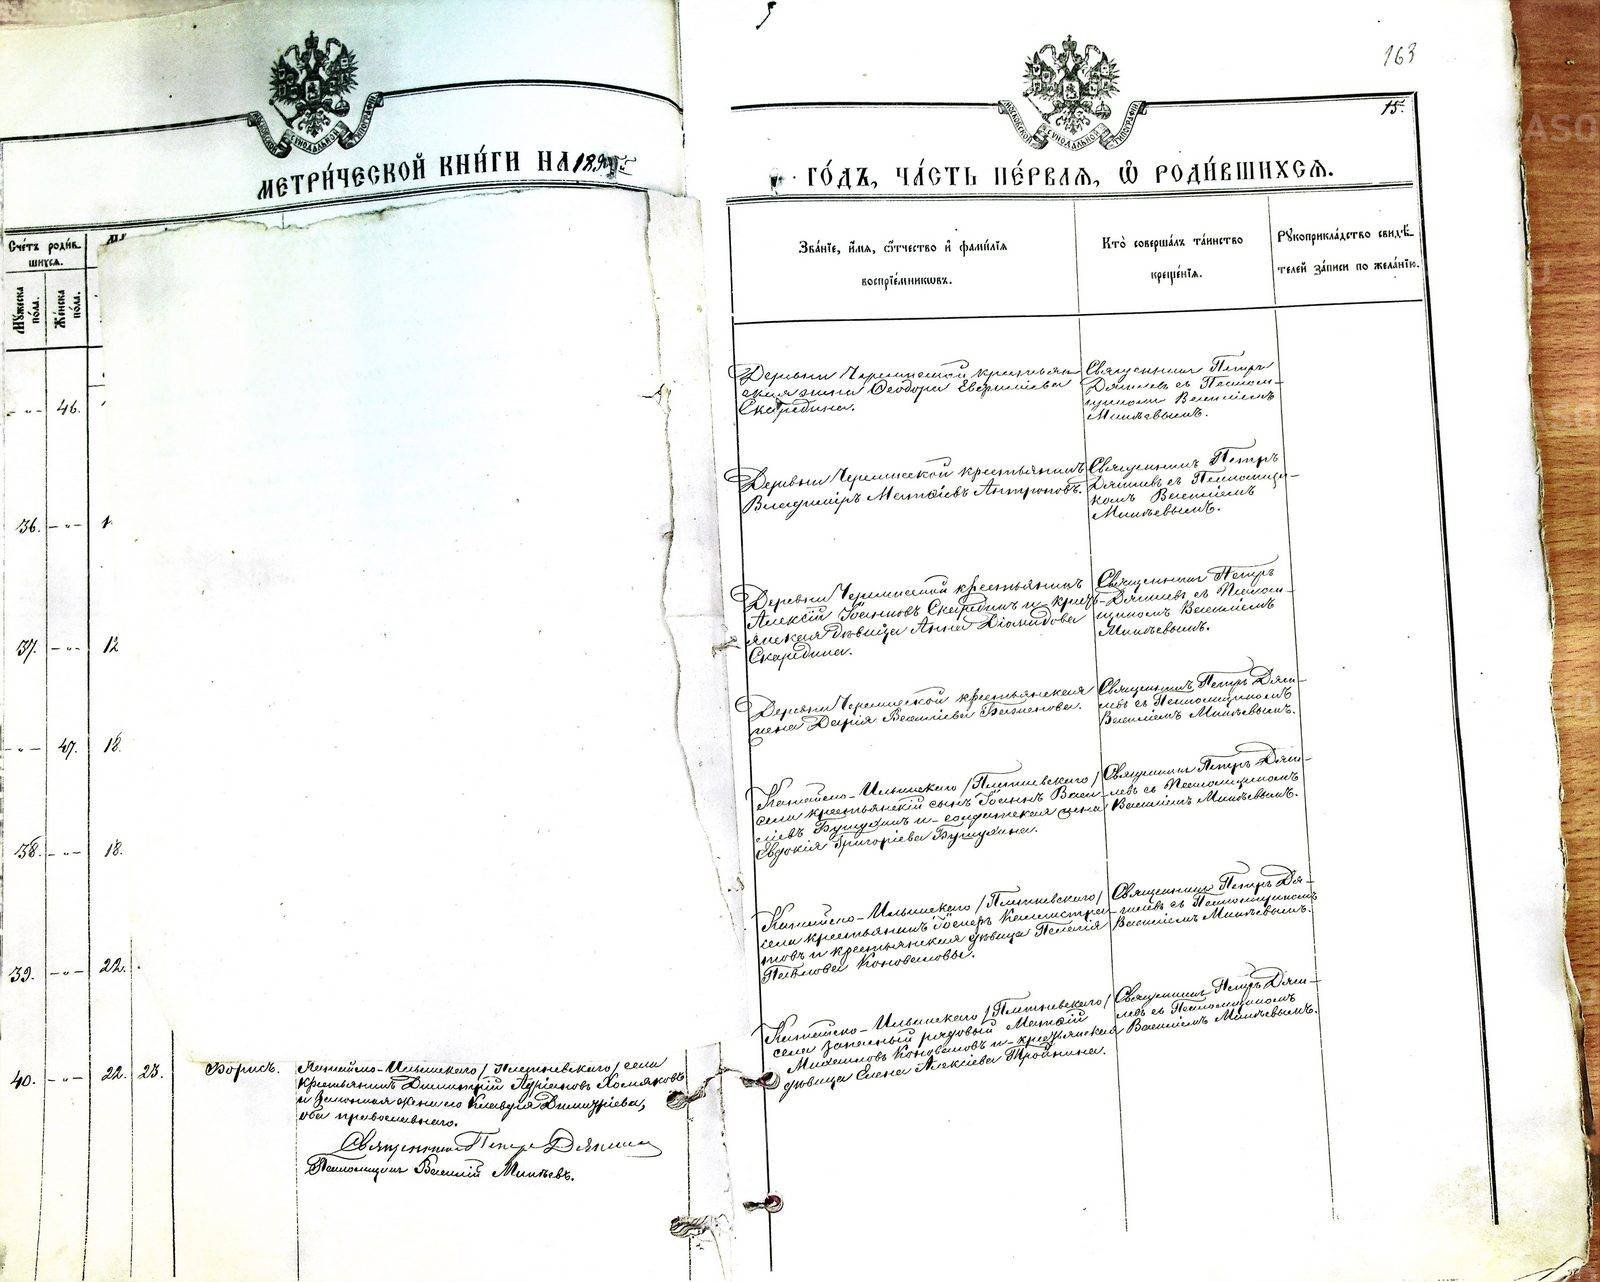 163
15.
МОСКОВСКОЙ СѴНОДАЛЬНОЙ ТИПОГРАФІИ
МОСКОВСКОЙ СѴНОДАЛЬНОЙ ТИПОГРАФІИ
МЕТРИ́ЧЕСКОЙ КНИ́ГИ НА 189
ГО́ДЪ, ЧА́СТЬ ПЕ́РВАЯ, Ѽ РОДИ́ВШИХСЯ.
Сче́тъ роди́в-
шихся.
Мꙋ́жеска по́ла.
Же́нска по́ла.
Зва́нїе, и́мя, ѻ́тчество и҆ фами́лїя
воспрїе́мникѡвъ.
Кто̀ соверша́лъ та́инство
креще́нїя.
Рꙋкоприкла́дство свидѣ́-
телей за́писи по жела́нїю.
- „ - 46.
Деревни Черемисской крестьян-
ская жена Ѳеодора Евфиміева
Скаредина.
Священникъ Петръ
Дягилевъ съ Псалом-
щикомъ Василіемъ
Минѣевымъ.
36. - „ -
Деревни Черемисской крестьянинъ
Владиміръ Матѳіевъ Антроповъ.
Священникъ Петръ
Дягилевъ съ Псаломщи-
комъ Василіемъ
Минѣевымъ.
37. - „ - 12
Деревни Черемисской крестьянинъ
Алексій Іоанновъ Скарединъ и кресть-
янская дѣвица Анна Діомидова
Скаредина.
Священникъ Петръ
Дягилевъ съ Псалом-
щикомъ Василіемъ
Минѣевымъ.
- „ - 47. 18.
Деревни Черемисской крестьянская
жена Дарія Василіева Баженова.
Священникъ Петръ Дяги-
левъ съ Псаломщикомъ
Василіемъ Минѣевымъ.
38. - „ - 18.
Катайско-Ильинскаго /Плетневскаго/
села крестьянскій сынъ Іоаннъ Васи-
ліевъ и солдатская жена
Евдокія Григоріева
Священникъ Петръ Дяги-
левъ съ Псаломщикомъ
Василіемъ Минѣевымъ.
39. - „ - 22.
Катайско-Ильинскаго /Плетневскаго/
села крестьянинъ Каллистра-
товъ и крестьянская дѣвица Пелагія
Павлова Коноваловы.
Священникъ Петръ Дя-
гилевъ съ Псаломщикомъ
Василіемъ Минѣевымъ.
40. - „ - 22. 23. Борисъ.
Катайско-Ильинскаго /Плетневскаго/ села
крестьянинъ Димитрій Адріановъ Хомяковъ
и законная жена его Клавдія Димитріева,
оба православнаго.
Священникъ Петръ Дягилевъ
Псаломщикъ Василій Минѣевъ.
Катайско-Ильинскаго /Плетневскаго/
села запасный рядовый Матѳій
Михаиловъ Коноваловъ и крестьянская
дѣвица Елена Алексіева Тройнина.
Священникъ Петръ Дяги-
левъ съ Псаломщикомъ
Василіемъ Минѣевымъ.